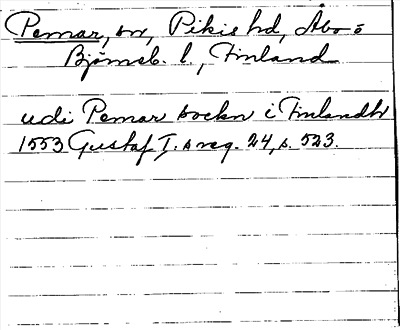 Pemar, sn, Pikis hd, Åbo o
Björneb. l., Finland
udi Pemar sockn i Finlandh
1553 Gustaf I:s reg. 24, s. 523.